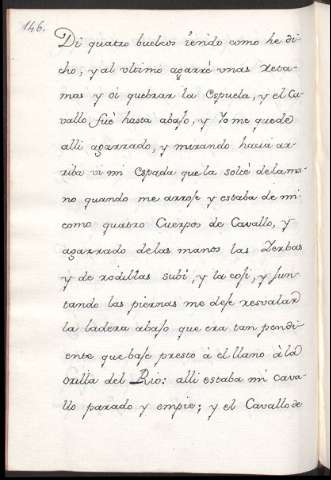 146.
Di quatro buelcos iendo como he di
cho, y al vltimo agarré vnas Reta
mas y oi quebrar la Espuela, y el Ca
vallo fué hasta abaso, y Yo me quede
alli agarrado, y mirando hacia ar
riba vi mi Espada que la solté de la ma
no quando me arrose y estaba de mi
como quatro Cuerpos de Cavallo, y
agarrado de las manos las Yerbas
y de rodillas subi, y la cosi, y sun
tando las piernas me dese resvalar
la ladera abaso que era tan pendi
ente que base presto à el llano à la
orilla del Rio: alli estaba mi cava
llo parado y empie; y el Cavallo de